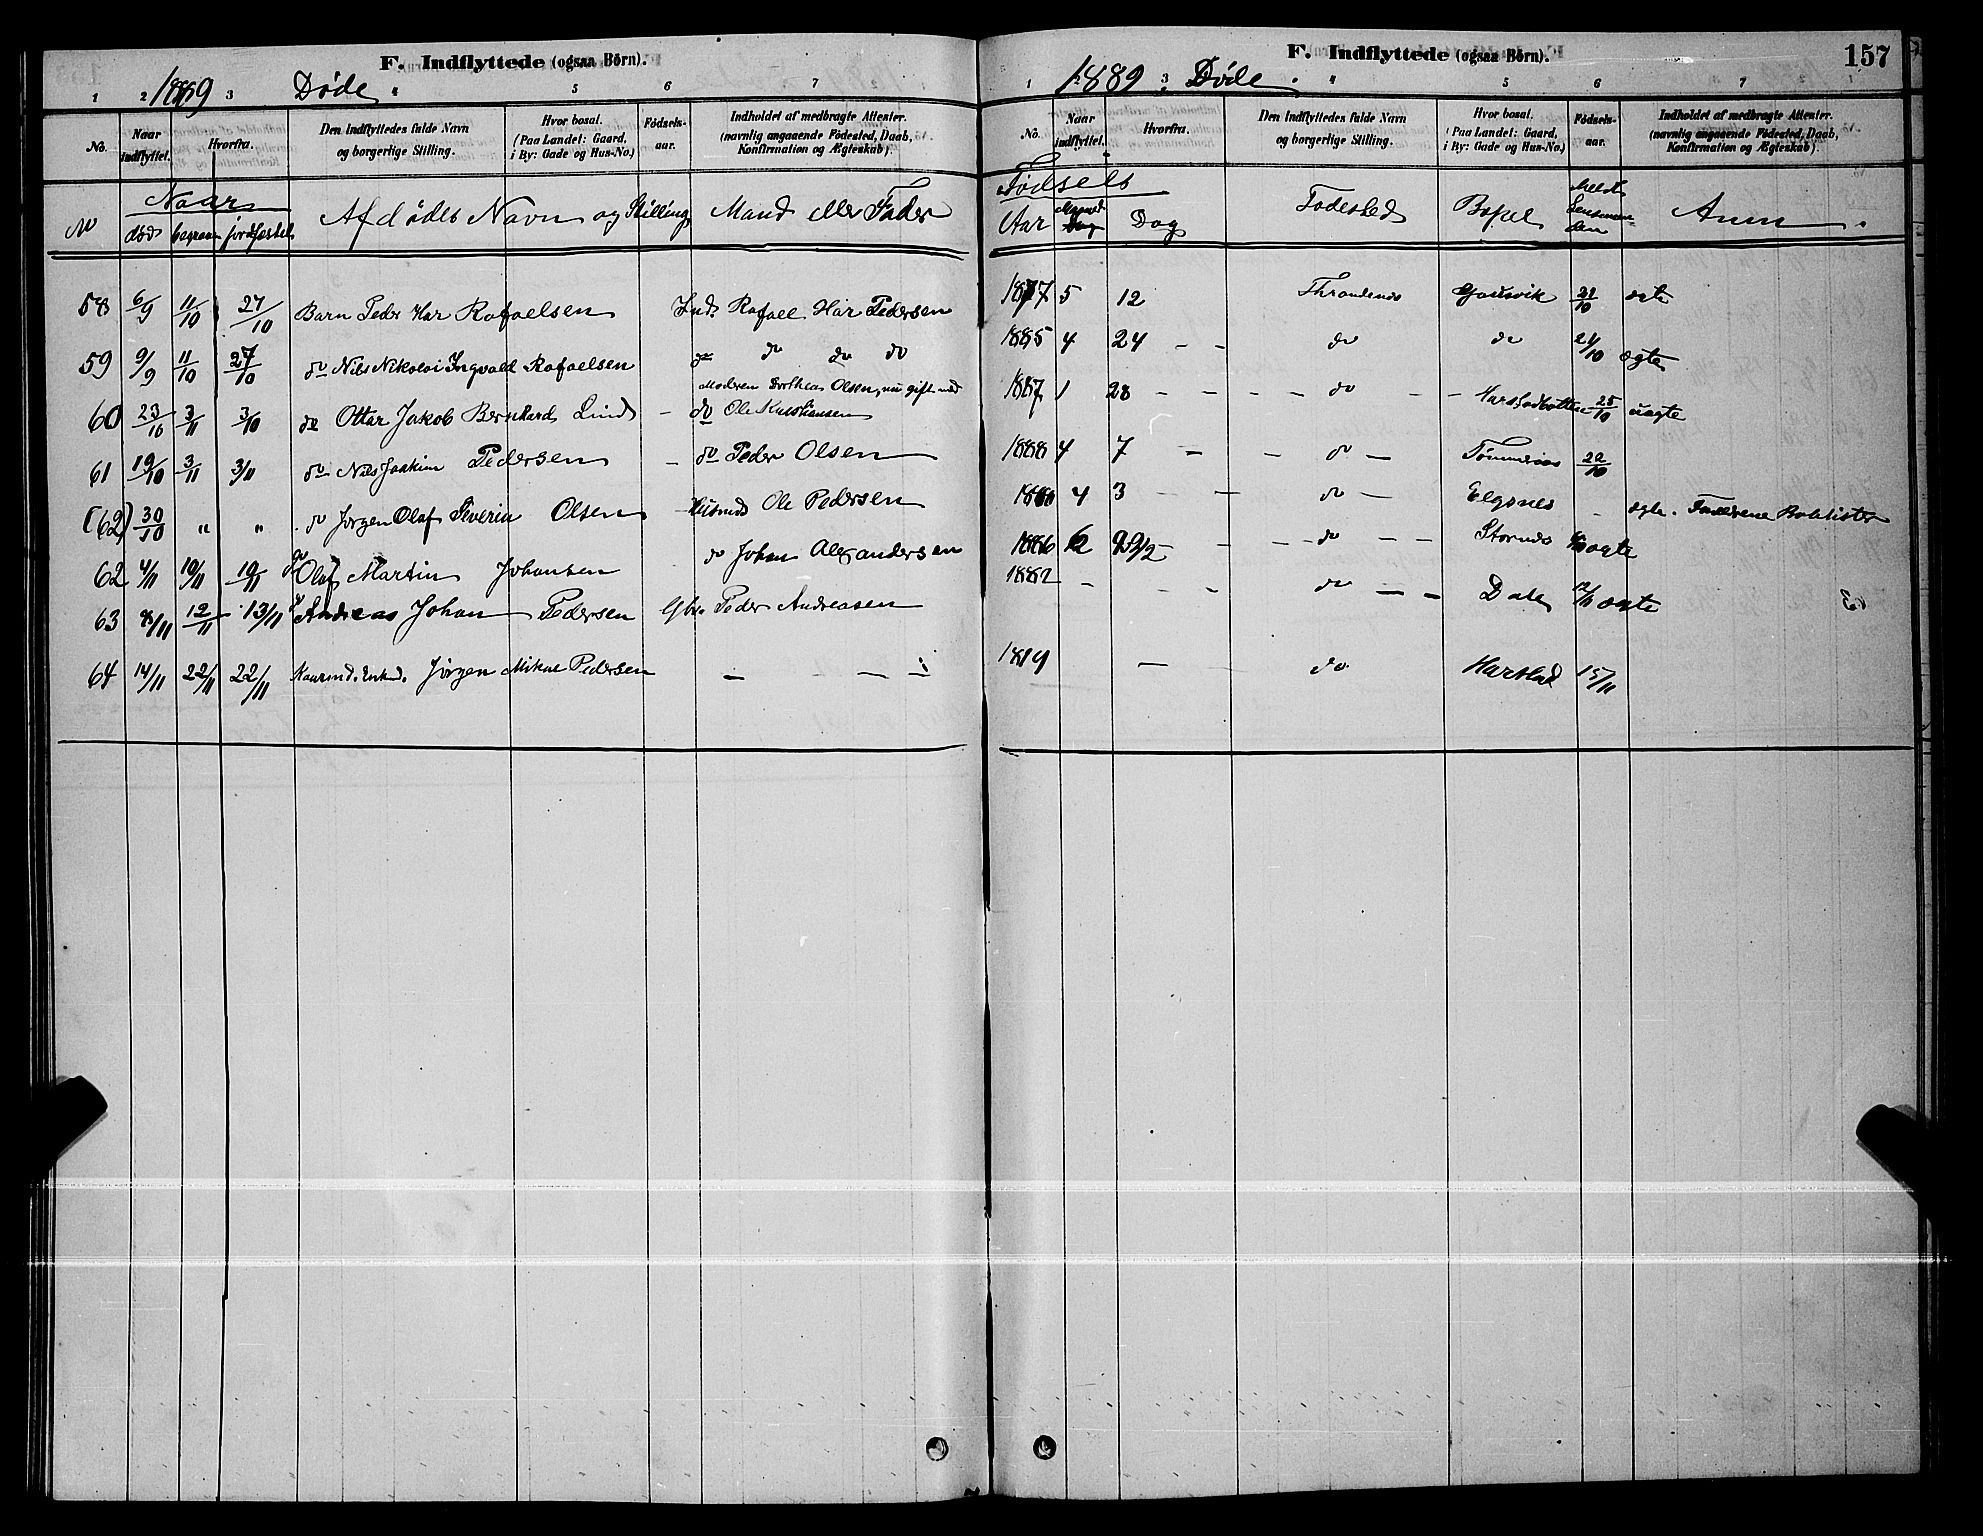 F. Indflyttede (ogsaa Börn).
1889 Døde
1 2 3 4 5 6 7
No. Naar indflyttet. Hvorfra. Den Indflyttedes fulde Navn og borgerlige Stilling. Hvor bosat. (Paa Landet: Gaard, i By: Gade og Hus-No.) Fødsels-aar. Indholdet af medbragte Attester. (navnlig angaaende Födested, Daab, Konfirmation og Ægteskab).
No Naar død begraven jordfæstet Afdødes Navn og Stilling Mand eller Fader
58 6/9 11/10 27/10 Barn Peder Har Rafaelsen Ind. Rafael Har Pedersen
59 9/9 11/10 27/10 do Nils Nikolai Ingvald Rafaelsen do do do do
Moderen Dorthea Olsen, nu gift med
60 23/10 3/11 3/10 do Ottar Jakob Bernhard Lind - do Ole Kristiansen
61 19/10 3/11 3/11 do Nils Joakim Pedersen - do Peder Olsen
(62) 30/10 " " do Jørgen Olaf Severin Olsen Husmd Ole Pedersen
62 4/11 19/11 19/11 do Olaf Martin Johansen do Johan Alexandersen
63 8/11 12/11 13/11 do Andreas Johan Pedersen Gbr. Peder Andreasen
64 14/11 22/11 22/11 Jørgen Mikal Pedersen - - -
F. Indflyttede (ogsaa Börn).
157
1889 Døde
1 3 4 5 6 7
No. Naar indflyttet. Hvorfra. Den Indflyttedes fulde Navn og borgerlige Stilling. Hvor bosat. (Paa Landet: Gaard, i By: Gade og Hus-No.) Fødsels-aar. Indholdet af medbragte Attester. (navnlig angaaende Födested, Daab, Konfirmation og Ægteskab).
Fødsels Aar Maaned Dag Fødested Bopel Meldt Lensmanden Anm.
1877 5 12 Throndenes Gausvik 21/10 ægte
1885 4 24 - - do do 21/10 ægte
1887 1 28 - - - do - - Harstadbotten 25/10 uægte
1888 4 7 - - do - Tømmeraas 22/10
4 3 - - do - Elgsnes - ægte.
1886 - - - do - - Stornes ægte
1882 - - - do - - Dale 12/11 ægte
1819 - do Harstad 15/11